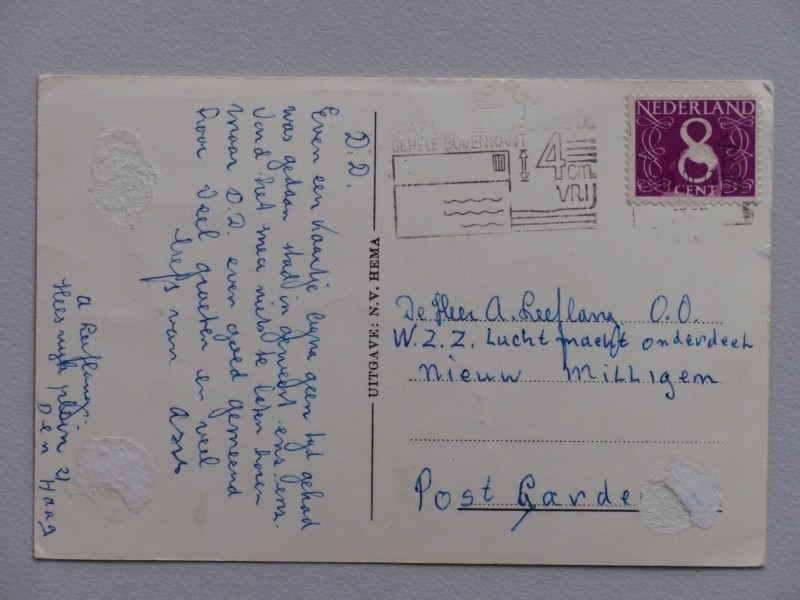 D.D.
Even een Kaartje bijna geen tijd gehad
was gedaan stad in geweest enz. enz.
Vond het maar niets te laten horen
maar D.D. even goed gemeend
Door veel groeten en veel
liefs van
A Leeflang.
Heeswijk plein 21
Den Haag
UITGAVE: N.V. HEMA
LANGS DE
GEHELE BOVENKANT
4 cm.
VRIJ
NEDERLAND
8
CENT
De Heer A. Leeflang O.O.
W.Z.Z. Luchtmacht onderdeel
Nieuw Milligen
Post Garde